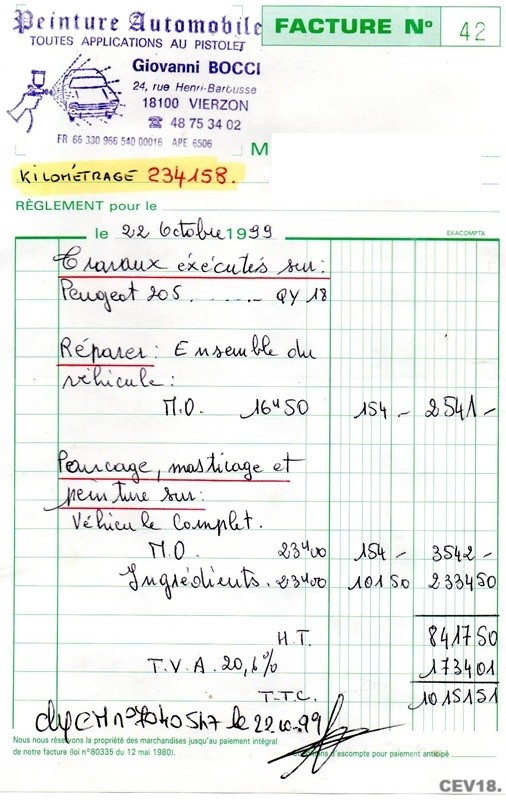 Peinture Automobile
TOUTES APPLICATIONS AU PISTOLET
Giovanni BOCCI
24, rue Henri-Barbusse
18100 VIERZON
☎ 48 75 34 02
FR 66 330 966 540 00016 APE 6506
FACTURE No 42
M
KILOMÉTRAGE 234158.
RÈGLEMENT pour le
le 22 Octobre 1999
EXACOMPTA
Travaux exécutés sur:
Peugeot 205 ........ QY 18
Réparer: Ensemble du
véhicule:
M.O. 16H50 154 - 2541 -
Poncage, masticage et
peinture sur:
Véhicule Complet.
M.O. 23H00 154 - 3542 -
Ingrédients. 23H00 101 50 2334 50
H.T. 8417 50
T.V.A. 20,6% 1734 01
T.T.C. 10151 51
le 22.10.99
Nous nous réservons la propriété des marchandises jusqu'au paiement intégral
de notre facture (loi n°80335 du 12 mai 1980).
Conditions d'escompte pour paiement anticipé
CEV18.